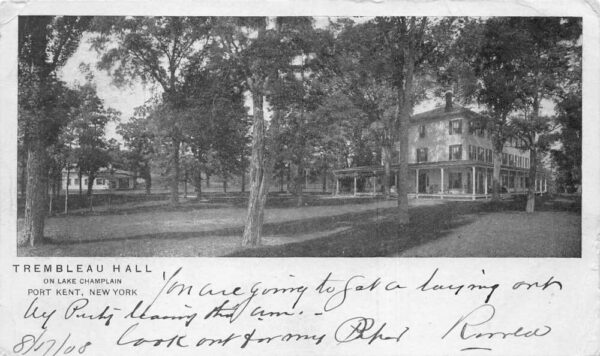 TREMBLEAU HALL
ON LAKE CHAMPLAIN
PORT KENT, NEW YORK
You are going to get a laying out
by leaving this
8/17/08 Look out for my